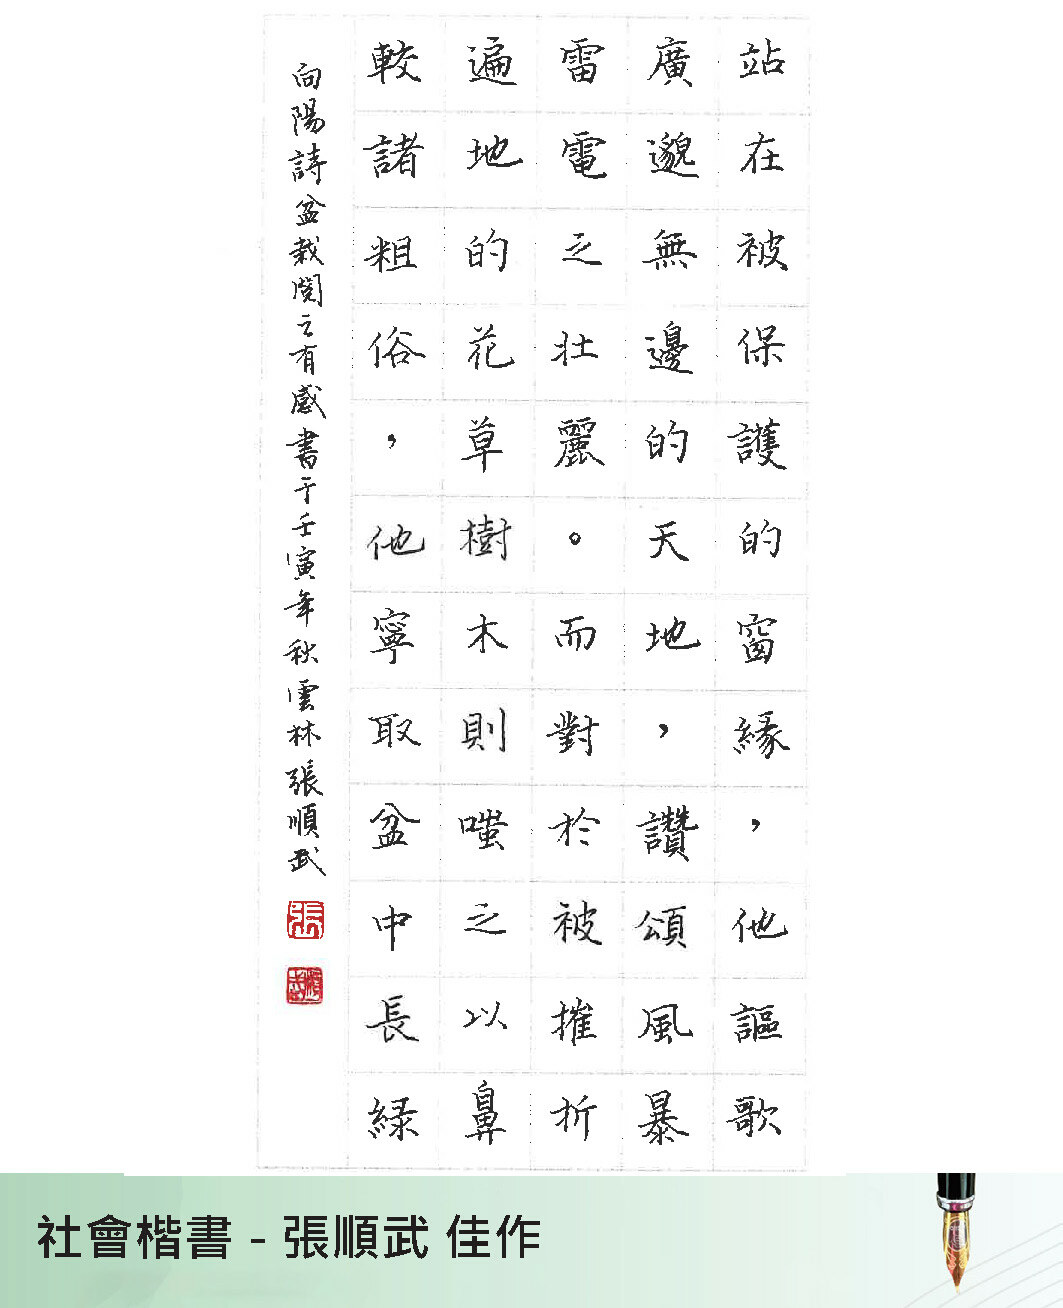 站在被保護的窗緣，他謳歌
廣邈無邊的天地，讚頌風暴
雷電之壯麗。而對於被摧折
遍地的花草樹木則嗤之以鼻
較諸粗俗，他寧取盆中長綠
向陽詩盆栽閱之有感書于壬寅年秋雲林張順武
張
順武
社會楷書 - 張順武 佳作